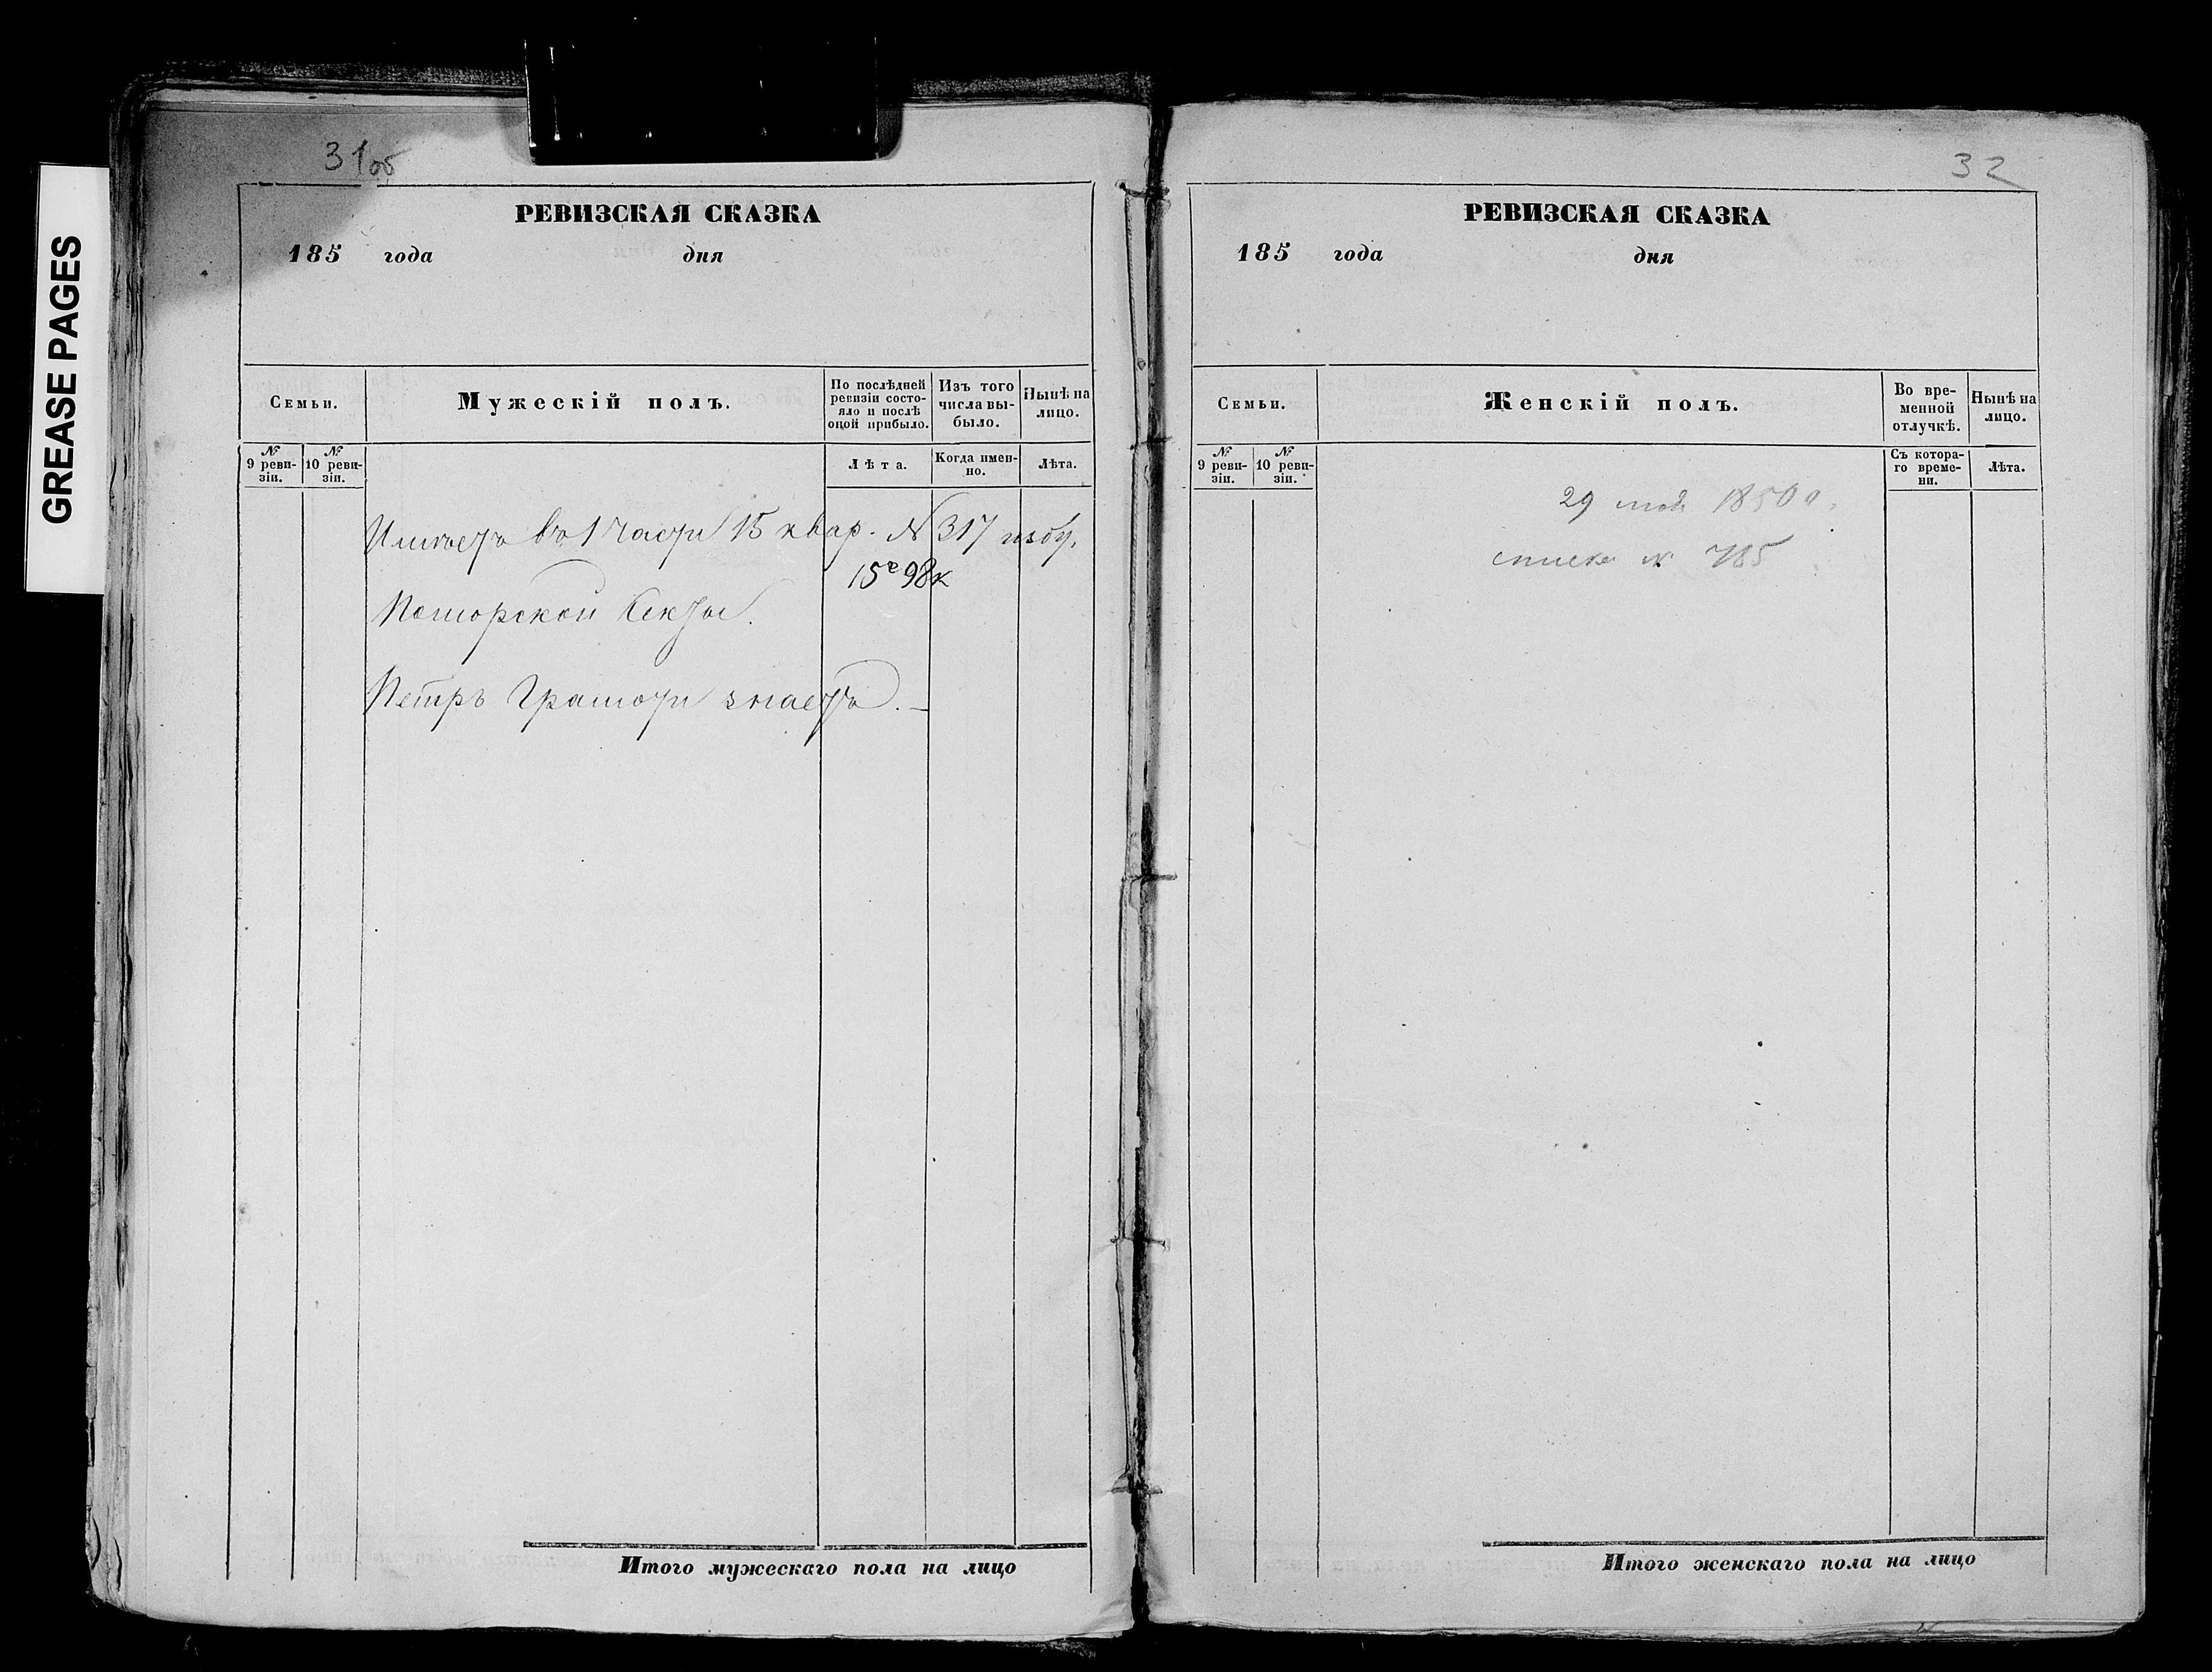 GREASE PAGES
31об
РЕВИЗСКАЯ СКАЗКА
185 года дня
Семьи.
Мужескій полъ.
По послѣдней ревизіи состояло и послѣ оной прибыло.
Изъ того числа выбыло.
Нынѣ на лицо.
№ 9 ревизіи.
№ 10 ревизіи.
Лѣта.
Когда именно.
Лѣта.
Имѣетъ въ 1 части 15 квар. № 317 избу.
15 р 98 к
Поморской секты.
Петръ грамоти знаетъ. —
Итого мужескаго пола на лицо
32
РЕВИЗСКАЯ СКАЗКА
185 года дня
Семьи.
Женскій полъ.
Во временной отлучкѣ.
Нынѣ на лицо.
№ 9 ревизіи.
№ 10 ревизіи.
Съ котораго времени.
Лѣта.
29 мая 1850 г.
списк № 785
Итого женскаго пола на лицо